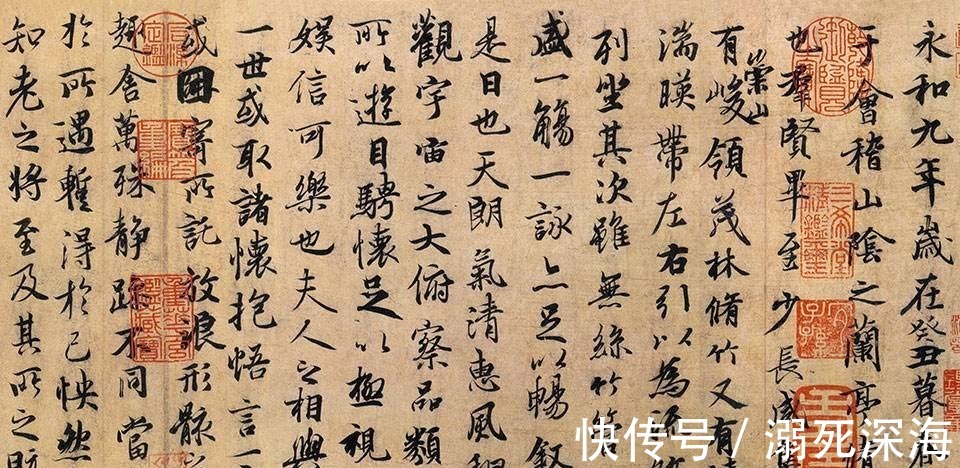 永和九年歲在癸丑暮春
于會稽山陰之蘭亭
也羣賢畢至少長咸
有崇山峻領茂林脩竹又有
湍暎帶左右引以為流
列坐其次雖無絲竹管
盛一觴一詠亦足以暢叙
是日也天朗氣清惠風和
觀宇宙之大俯察品類
所以遊目騁懷足以極視
娛信可樂也夫人之相與
一世或取諸懷抱悟言一
或因寄所託放浪形骸
趣舍萬殊静躁不同當
於所遇蹔得於己怏然
知老之將至及其所之既
快传号 / 溺死深海